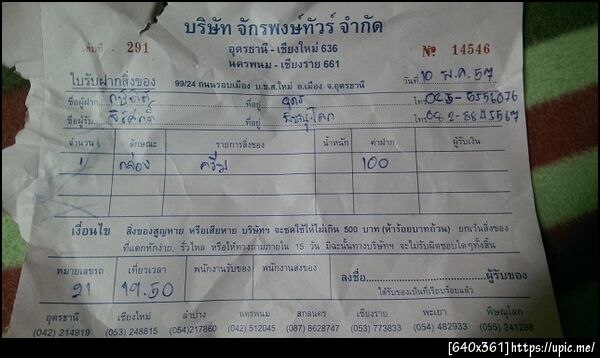 บริษัท จักรพงษ์ทัวร์ จำกัด
เล่มที่ - 291
อุดรธานี - เชียงใหม่ 636
นครพนม - เชียงราย 661
№ 14546
ใบรับฝากสิ่งของ
99/24 ถนนรอบเมือง บ.ข.ส.ใหม่ อ.เมือง จ.อุดรธานี
วันที่ 10 พ.ค. 57
ชื่อผู้ฝาก ที่อยู่ อุดร โทร
ชื่อผู้รับ ที่อยู่ โทร 082-8845567
จำนวน ลักษณะ รายการสิ่งของ น้ำหนัก ค่าฝาก ผู้รับเงิน
1 กล่อง ครีม 100
เงื่อนไข สิ่งของสูญหาย หรือเสียหาย บริษัทฯ จะชดใช้ให้ไม่เกิน 500 บาท (ห้าร้อยบาทถ้วน) ยกเว้นสิ่งของ
ที่แตกหักง่าย, รั่วไหล หรือให้ทางถามภายใน 15 วัน มิฉะนั้นทางบริษัทฯ จะไม่รับผิดชอบใดๆทั้งสิ้น
หมายเลขรถ เที่ยวเวลา พนักงานรับของ พนักงานส่งของ
21 19.50
ลงชื่อ ผู้รับของ
ได้รับของเป็นที่เรียบร้อยแล้ว
อุดรธานี เชียงใหม่ ลำปาง นครพนม สกลนคร เชียงราย พะเยา พิษณุโลก
(042) 214919 (053) 248815 (054)217860 (042) 512045 (087) 8628747 (053) 773833 (054) 482933 (055) 241288
[640x361]https://upic.me/